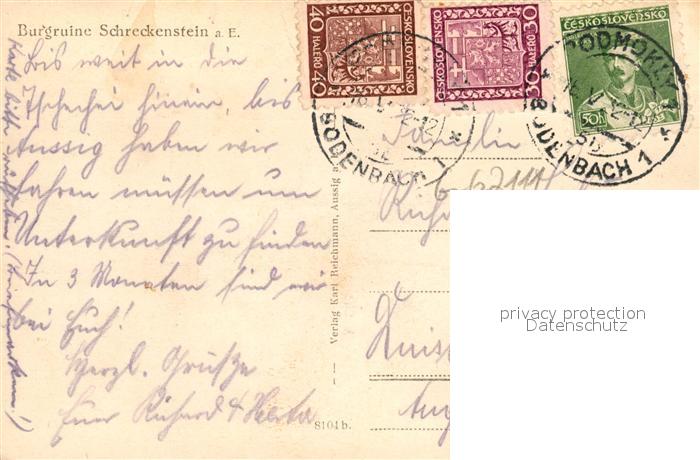 Burgruine Schreckenstein a. E.
Bis weit in die
Tschechei hinein, bis
Aussig haben wir
fahren müssen um
Unterkunft zu finden
In 3 Monaten sind wir
bei Euch!
Herzl. Grüße
Euer Richard & Herta
Karte bitte
Verlag Karl Reichmann, Aussig a.
8104 b.
40 HALÉŘŮ 40
ČESKOSLOVENSKO
30 HALÉŘŮ 30
ČESKOSLOVENSKO
ČESKOSLOVENSKO
50h
PODMOKLY 1
BODENBACH 1
BODENBACH 1
Familie
62111
privacy protection
Datenschutz